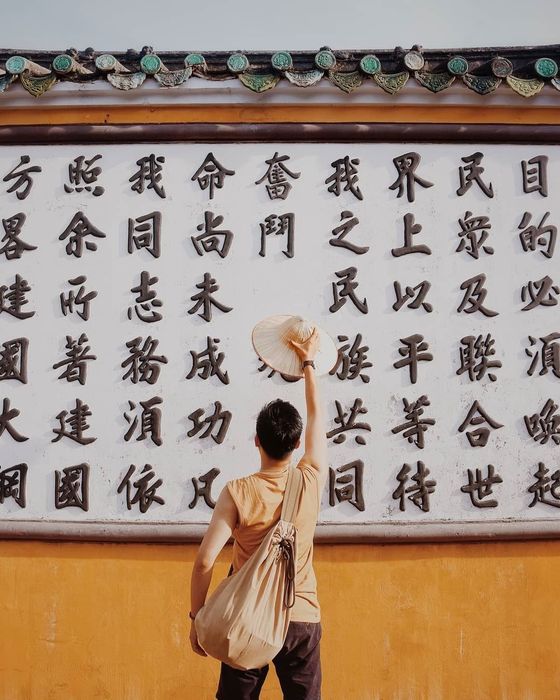 目的必須喚起
民衆及聯合世
界上以平等待
我之民族共同
奮鬥
命尚未成功凡
我同志務須依
照余所著建國
方畧建國大綱